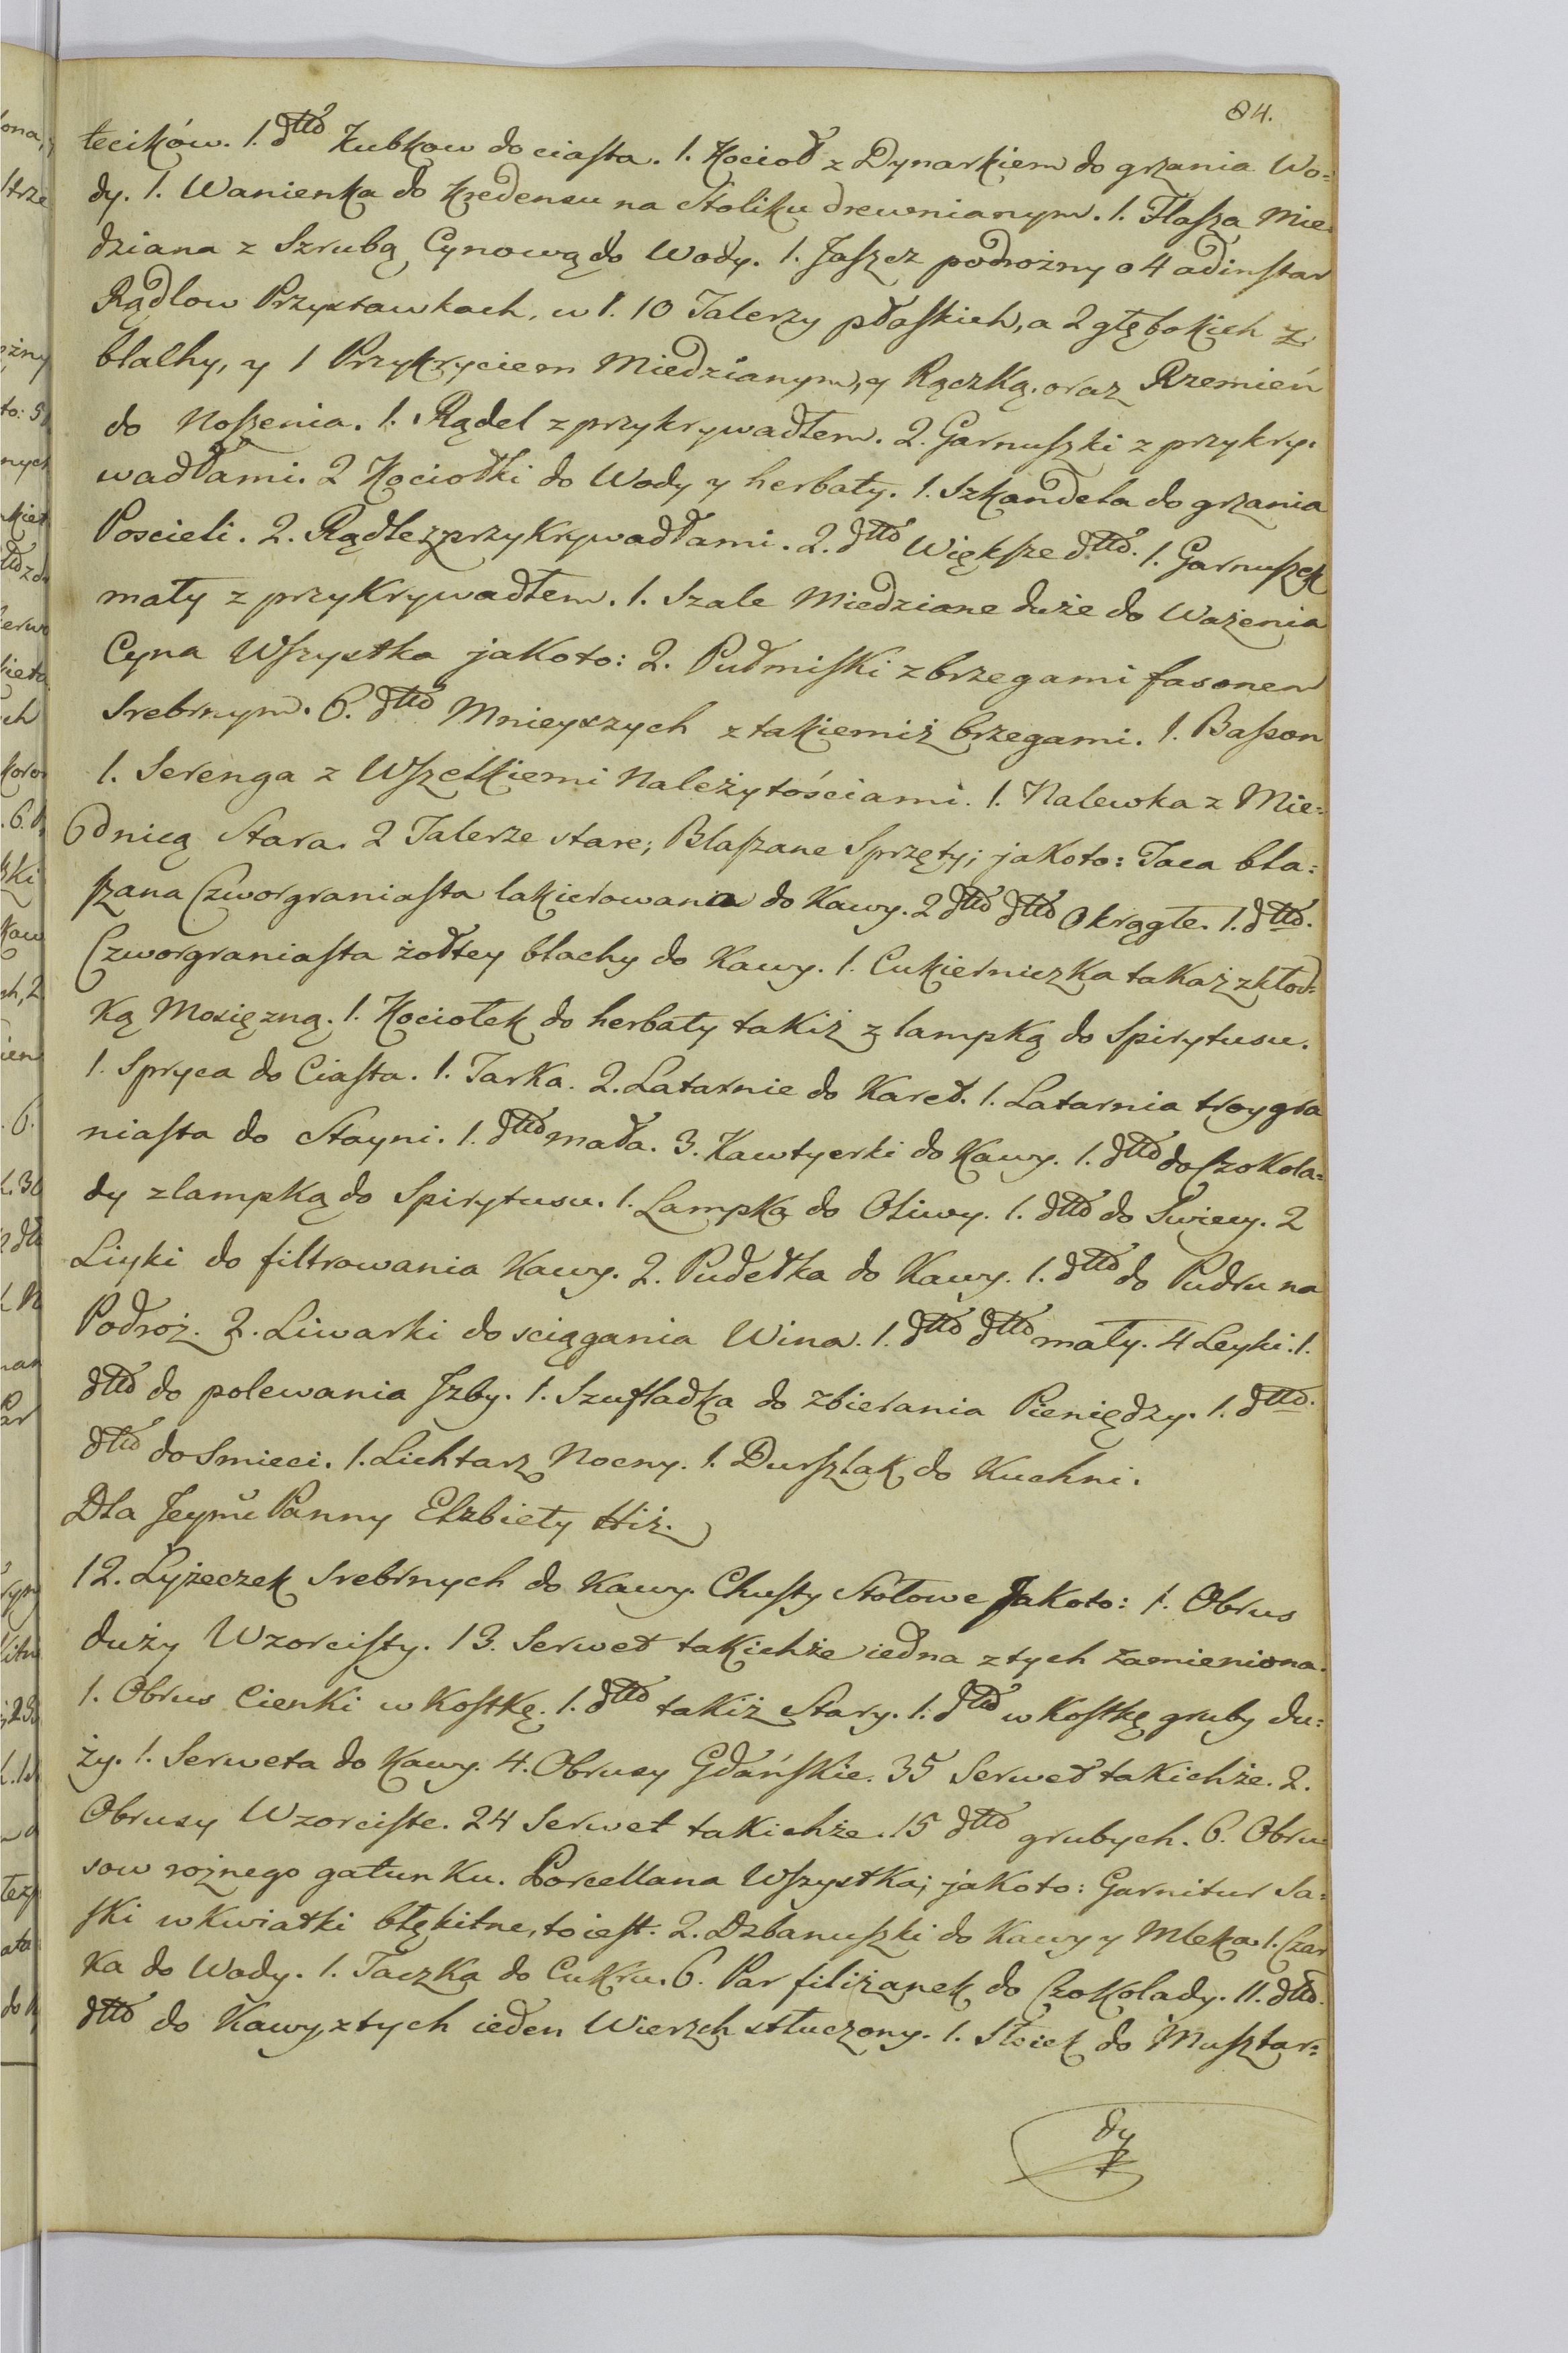 84.
łecików. 1. dtto Kubkow do ciasta. 1. Kocioł z Dynarkiem do grzania Wo=
dy. 1. Wanienka do Kredensu na Stoliku drewnianym. 1. Flasza Mie=
dziana z Szrubą Cynową do Wody. 1. Jaszcz podrożny o 4 adinstar
Rądlow Przystawkach, w 1. 10 Talerzy płaskich, a 2 głębokich z
blalhy, y 1 Przykryciem Miedzianym, y Rączką. oraz Rzemień
do Noszenia. 1. Rądel z przykrywadłem. 2. Garnuszki z przykry=
wadłami. 2 Kociołki do Wody y herbaty. 1. Szkandela do grzania
Poscieli. 2. Rądle z przykrywadłami. 2. dtto Większe dtto. 1. Garnuszek
mały z przykrywadłem. 1. Szale Miedziane duże do Ważenia
Cyna Wszystka jakoto: 2. Pułmiski z brzegami fasonem
Srebrnym. 6. dtto Mnieyszych z takiemiż brzegami. 1. Bason
1. Serenga z Wszelkiemi Należytościami. 1. Nalewka z Mie=
dnicą Stara. 2 Talerze stare; Blaszane Sprzęty; jakoto: Taca bla=
szana Czworgraniasta lakierowana do Kawy. 2 dtto dtto Okrągłe. 1. dtto.
Czworgraniasta żołtey blachy do Kawy. 1. Cukierniczka takaż z kłod=
ką Mosięzną. 1. Kociołek do herbaty takiż z lampką do Spirytusu.
1. Spryca do Ciasta. 1. Tarka. 2. Latarnie do Karet. 1. Latarnia troygra
niasta do Stayni. 1. dtto mała. 3. Kawtyerki do Kawy. 1. dtto do Czokola=
dy z lampką do Spirytusu. 1. Lampka do Oliwy. 1. dtto do Swiecy. 2
Liyki do filtrowania Kawy. 2. Pudełka do Kawy. 1. dtto do Pudru na
Podroż. 2. Liwarki do sciągania Wina. 1. dtto dtto mały. 4 Leyki. 1.
dtto do polewania Jzby. 1. Szufladka do zbierania Pieniędzy. 1. dtto.
dtto do Smieci. 1. Lichtarz Nocny. 1. Durszlak do Kuchni.
Dla Jeymć Panny Elzbiety Hiż.
12. Lyżeczek Srebrnych do Kawy. Chusty Stołowe Jakoto: 1. Obrus
duży Wzorcisty. 13. Serwet takichże iedna z tych zamieniona.
1. Obrus Cienki w Kostkę. 1. dtto takiż Stary. 1. dtto w Kostkę gruby du=
ży. 1. Serweta do Kawy. 4. Obrusy Gdańskie. 35 Serwet takichże. 2.
Obrusy Wzorciste. 24 Serwet takichże. 15 dtto grubych. 6. Obru
sow rożnego gatunku. Porcellana Wszystka; jakoto: Garnitur Sa=
ski w Kwiatki błękitne, to iest. 2. Dzbanuszki do Kawy y Mleka. 1. Czar
ka do Wody. 1. Taczka do Cukru. 6. Par filiżanek do Czokolady. 11. dtto.
dtto do Kawy, z tych ieden Wierzch stłuczony. 1. Słoiek do Musztar=
dy